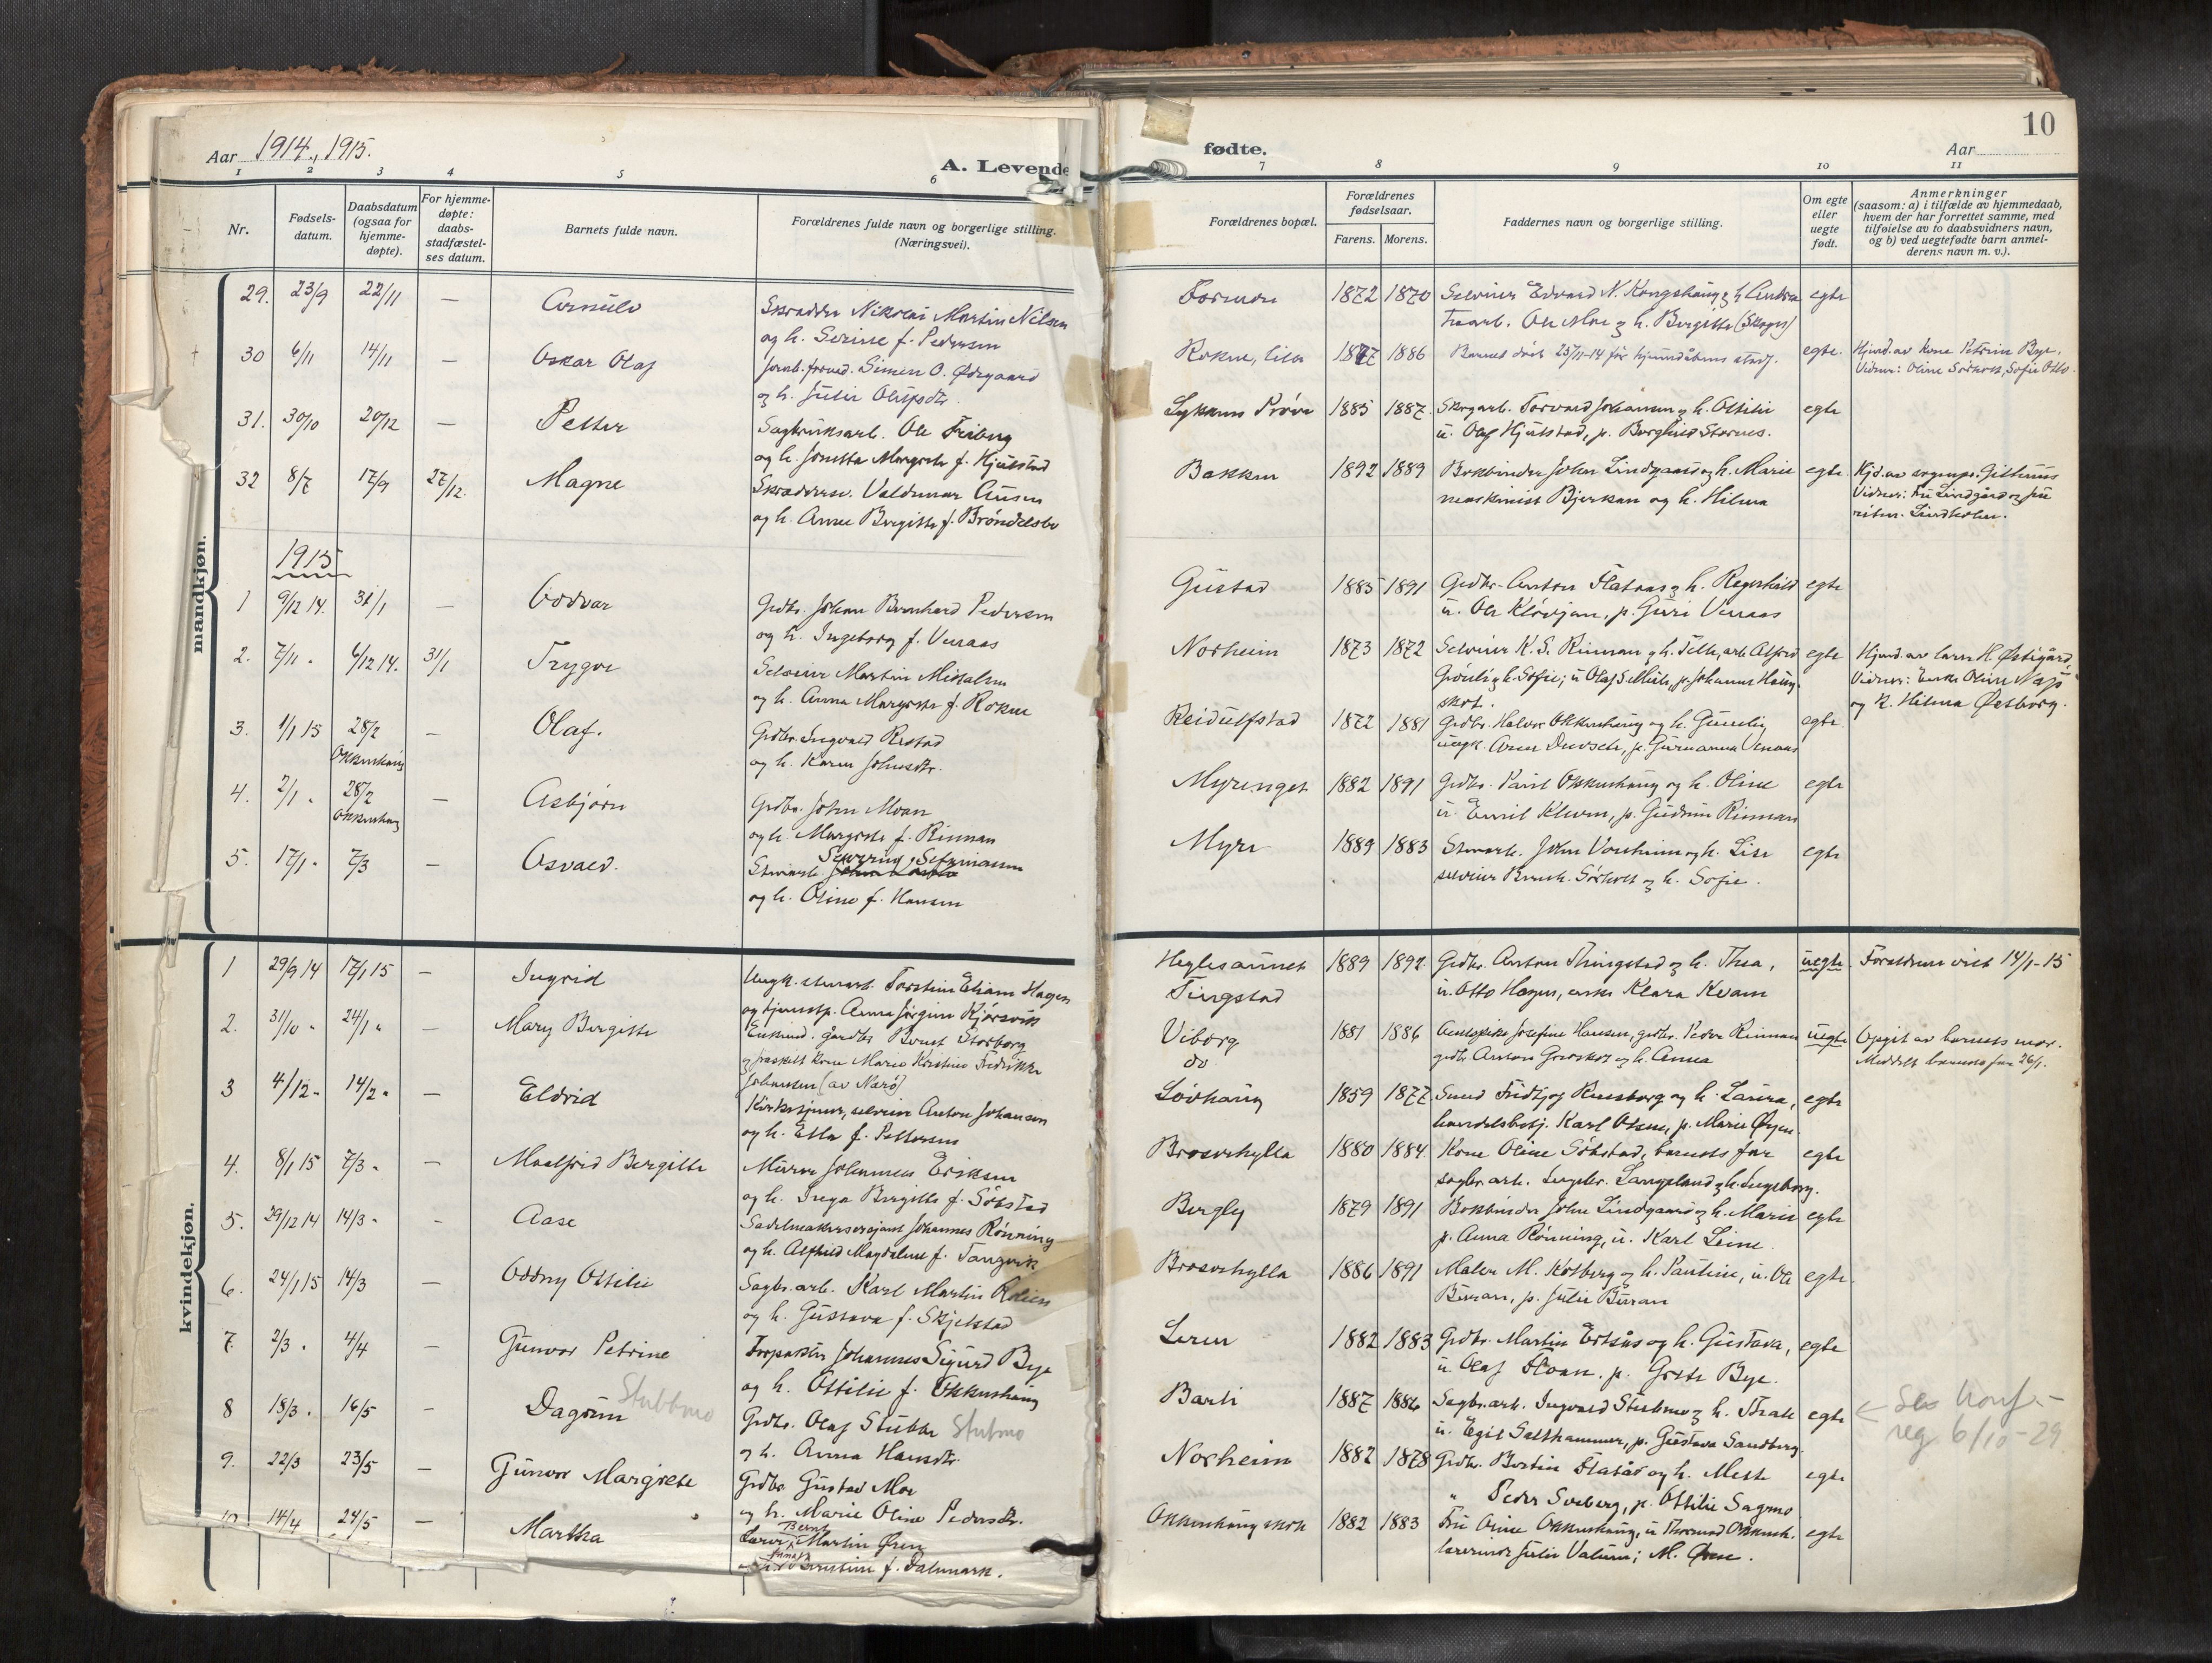 Aar 1914, 1915.
A. Levende
1 2 3 4 5 6
Nr.
Fødsels-
datum.
Daabsdatum
(ogsaa for
hjemme-
døpte).
For hjemme-
døpte:
daabs-
stadfæstel-
ses datum.
Barnets fulde navn.
Forældrenes fulde navn og borgerlige stilling.
(Næringsvei).
mandkjøn.
29. 23/9 22/11 — Arnulv
Skrædder Nikolai Martin Nilsen
og h. Serine f. Pedersen
30 6/11 14/11 — Oskar Olaf
Simen O. Ødegaard
og h. Julie
31. 30/10 20/12 — Petter
Sagbruksarb. Ole Friberg
og h. Jonetta Margrete f. Hjulstad
32 8/7 17/9 27/12. Magne
Valdemar
og h. Anne Bergitte f. Brøndelsbo
1915
1 9/12 14. 31/1 — Oddvar
Grdbr. Johan Bernhard Pedersen
og h. Ingeborg f. Venaas
2. 7/11 " 6/12 14. 31/1 Trygve
Selveier Martin Mikalsen
og h. Anna Margrete f. Rokne
3. 1/1 15 28/2 — Olaf.
Okkenhaug
Grdbr. Ingvald Reistad
og h. Karen Johnsdtr.
4. 2/1 " 28/2 — Asbjørn
Okkenhaug
Grdbr. John Moan
og h. Margrete f. Rinnan
5. 17/1 " 7/3 — Osvald.
og h. Oline f. Hansen
kvindekjøn.
1 29/9 14 17/1 15 — Ingrid
Torstein Eliam Hagen
og tjenestp. Anna Jørgine Kjørsvik
2. 31/10 " 24/1 " — Mary Bergitte
Enkemd. gårdbr. Bernt Storborg
og fraskilt kone Marie Kristine Fredrikke
Johansen (av Nærø)
3 4/12 " 14/2 " — Eldrid
Kirketjener, selveier Anton Johansen
og h. Ella f. Pettersen
4. 8/1 15 7/3 " — Maalfrid Bergitte
Murer Johannes Eriksen
og h. Inga Bergitte f. Søbstad
5. 29/12 14 14/3 " - Aase
Sadelmakersersjant Johannes Rønning
og h. Alfhild Magdalene f. Tangvik
6. 24/1 15 14/3 — Oddny Ottilie
Sagbr.arb. Karl Martin
og h. Gustava f. Skjelstad
7. 2/3 " 4/4 — Gunvor Petrine
Forpakter Johannes Sigurd Bye
og h. Ottilie f. Okkenhaug
8 18/3 " 16/5 — Dagrun Stubbmo
Grdbr. Olaf Stubbe Stubmo
og h. Anna Hansdtr.
9. 22/3 23/5 — Gunvor Margrete
Grdbr. Gustav Moe
og h. Marie Oline Pedersdtr.
10 14/4 24/5 — Martha
Bernt
Lærer Martin Øren
Kristine f. Dalemark.
10
fødte.
Aar
7 8 9 10 11
Forældrenes bopæl.
Forældrenes
fødselsaar.
Farens. Morens.
Faddernes navn og borgerlige stilling.
Om egte
eller
uegte
født.
Anmerkninger
(saasom: a) i tilfælde av hjemmedaab,
hvem der har forrettet samme, med
tilføielse av to daabsvidners navn,
og b) ved uegtefødte barn anmel-
derens navn m. v.).
Formon 1872 1870 Selveier Edvard N. Kongshaug og h. Andrea egte
Ole Moe og h. Bergitte (Skogn)
Rokne, lille 1877 1886 Barnet døde 25/11-14 før hjemdåbens stadf. egte. Hjemd. av kone Petrine Bye.
Vidner: Oline Sørholt, Sofie Otto.
Lykkens Prøve 1885 1887. Skogarb. Torvald Johansen og h. Ottilie egte
u. Olaf Hjulstad, p. Borghild Stornes.
Bakken 1892 1889 Bokbinder John Lindgaard og h. Marie egte.
maskinist Bjerkan og h. Hilma
Vidner: Fru Lindgård og fru
Lindholm.
Gustad 1885 1891 Grdbr. Anton Flataas og h. Regnhild egte
u. Ole Kløvjan, p. Guri Venaas
Norheim 1873 1872 Selveier K. S. Rinnan og h. arb. Alfred egte
og h. Sofie; u Olaf p. Johanna Haug-
skot.
Hjemd. av Østigård,
Vidner: Enke Oline
og k. Hilma Østborg.
Reidulfstad 1872 1881 Grdbr. Halvor Okkenhaug og h. Gunelie egte.
p. Guruanna Venaas
Myrenget 1882 1891 Grdbr. Paul Okkenhaug og h. Oline egte
u. Emil Kluen, p. Gudrun Rinnan
Myre 1889 1883 John Vorheim og h. Lise egte
selveier Bernh. Sørholt og h. Sofie.
Heglesaunet 1889 1892. Grdbr. Anton Thingstad og h. Thea, uegte. Foreldrene viet 14/1-15
Tingstad
u. Otto Hagen, enke Klara Kvam
Viborg 1881 1886 Josefine Hansen, grdbr. Peder Rinnan uegte Opgit av barnets mor.
do
grdbr. Anton Grevskot og h. Anna
Meddelt barnets far 26/1.
Løvhaug 1859 1877. Smed Fridtjof Russborg og h. Laura, egte
handelsbetj. Karl Olsen, p. Marie Øyen.
Broderhylla 1880 1884 Kone Oline Søbstad, barnets far egte
sagbr.arb. Ingebr. Langeland og h. Ingeborg.
Bergly 1879 1891 Bokbinder John Lindgaard og h. Marie egte
p. Anna Rønning, u. Karl Leine.
Broderhylla 1886 1891 Maler M. Kolberg og h. Pauline, u. Ole egte.
Buran, p. Julie Buran
Leren 1882 1883 Grdbr. Martin Ertsås og h. Gustava, egte
u. Olaf p. Grete Bye.
Barli 1887 1886 Sagbr.arb. Ingvald Stubmo og h. egte ← Se konf.-
reg 6/10-29
u. Egil Salthammer, p. Gustava Sandberg.
Norheim 1882 1878 Grdbr. Bertin Flatås og h. Mette egte
" Peder Soberg, p. Ottilie Sagmo
Okkenhaug skole 1882 1883 Fru Oline Okkenhaug, u Thormod Okkenh. egte
lærerinde Julie M. Øren.